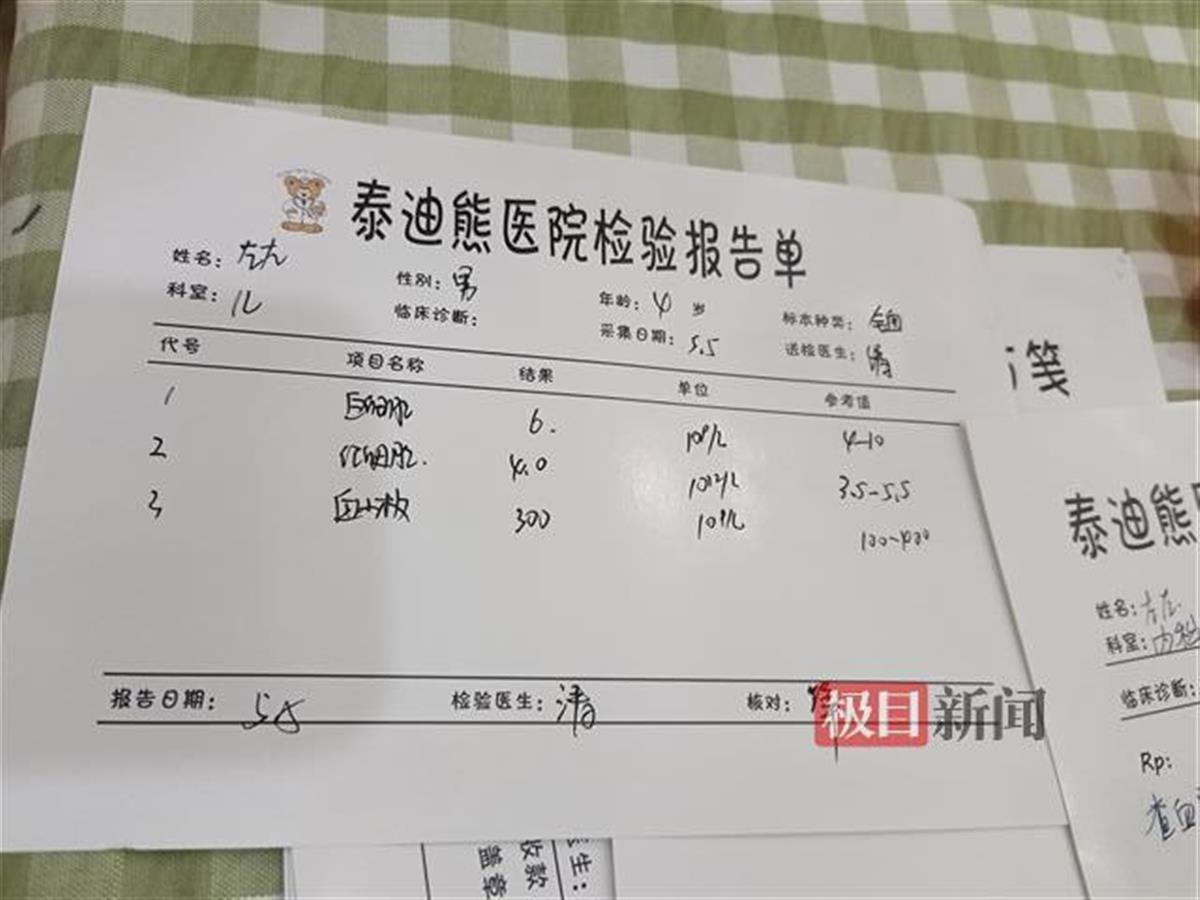 泰迪熊医院检验报告单
姓名: 左左 性别: 男 年龄: 4 岁 标本种类: 全血
科室: 儿 临床诊断: 采集日期: 5.5 送检医生: 涛
代号 项目名称 结果 单位 参考值
1 白细胞 6. 10⁹/L 4-10
2 红细胞. 4.0 10¹²/L 3.5-5.5
3 血小板 300 10⁹/L 100-400
报告日期: 5.5 检验医生: 涛 核对:
极目新闻
笺
泰迪熊医
姓名: 左左
科室: 内科
临床诊断:
Rp:
查血
医生:
收款
盖章